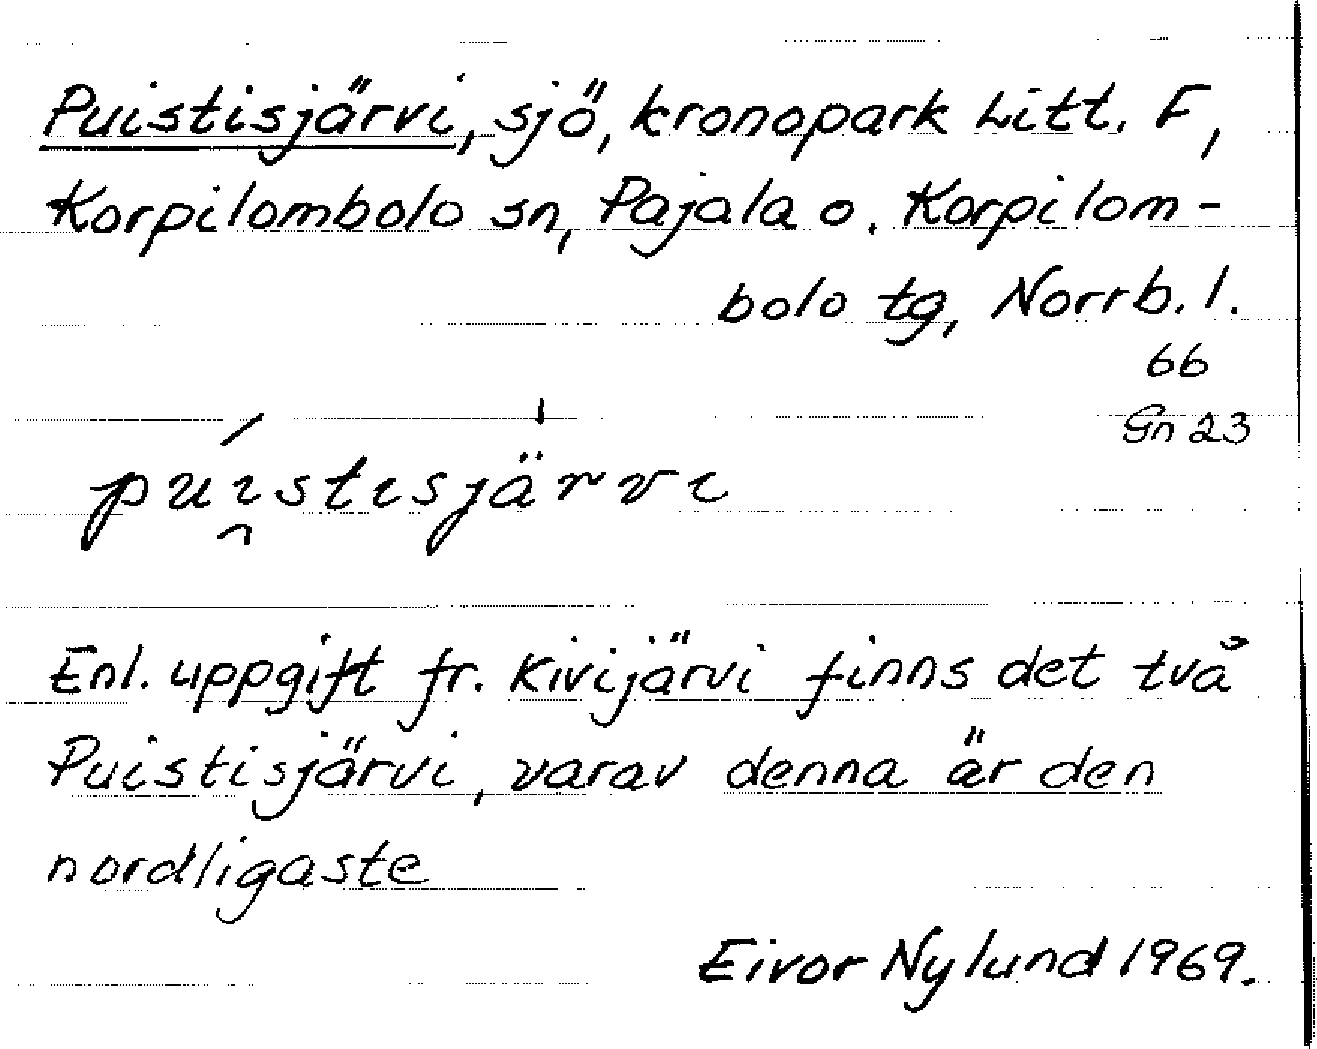 Puistisjärvi, sjö, kronopark Litt. F,
Korpilombolo sn, Pajala o. Korpilom-
bolo tg, Norrb. l.
66
Gn 23
púi̯stɩsjä̀rvɩ
Enl. uppgift fr. Kivijärvi finns det två
Puistisjärvi, varav denna är den
nordligaste
Eivor Nylund 1969.